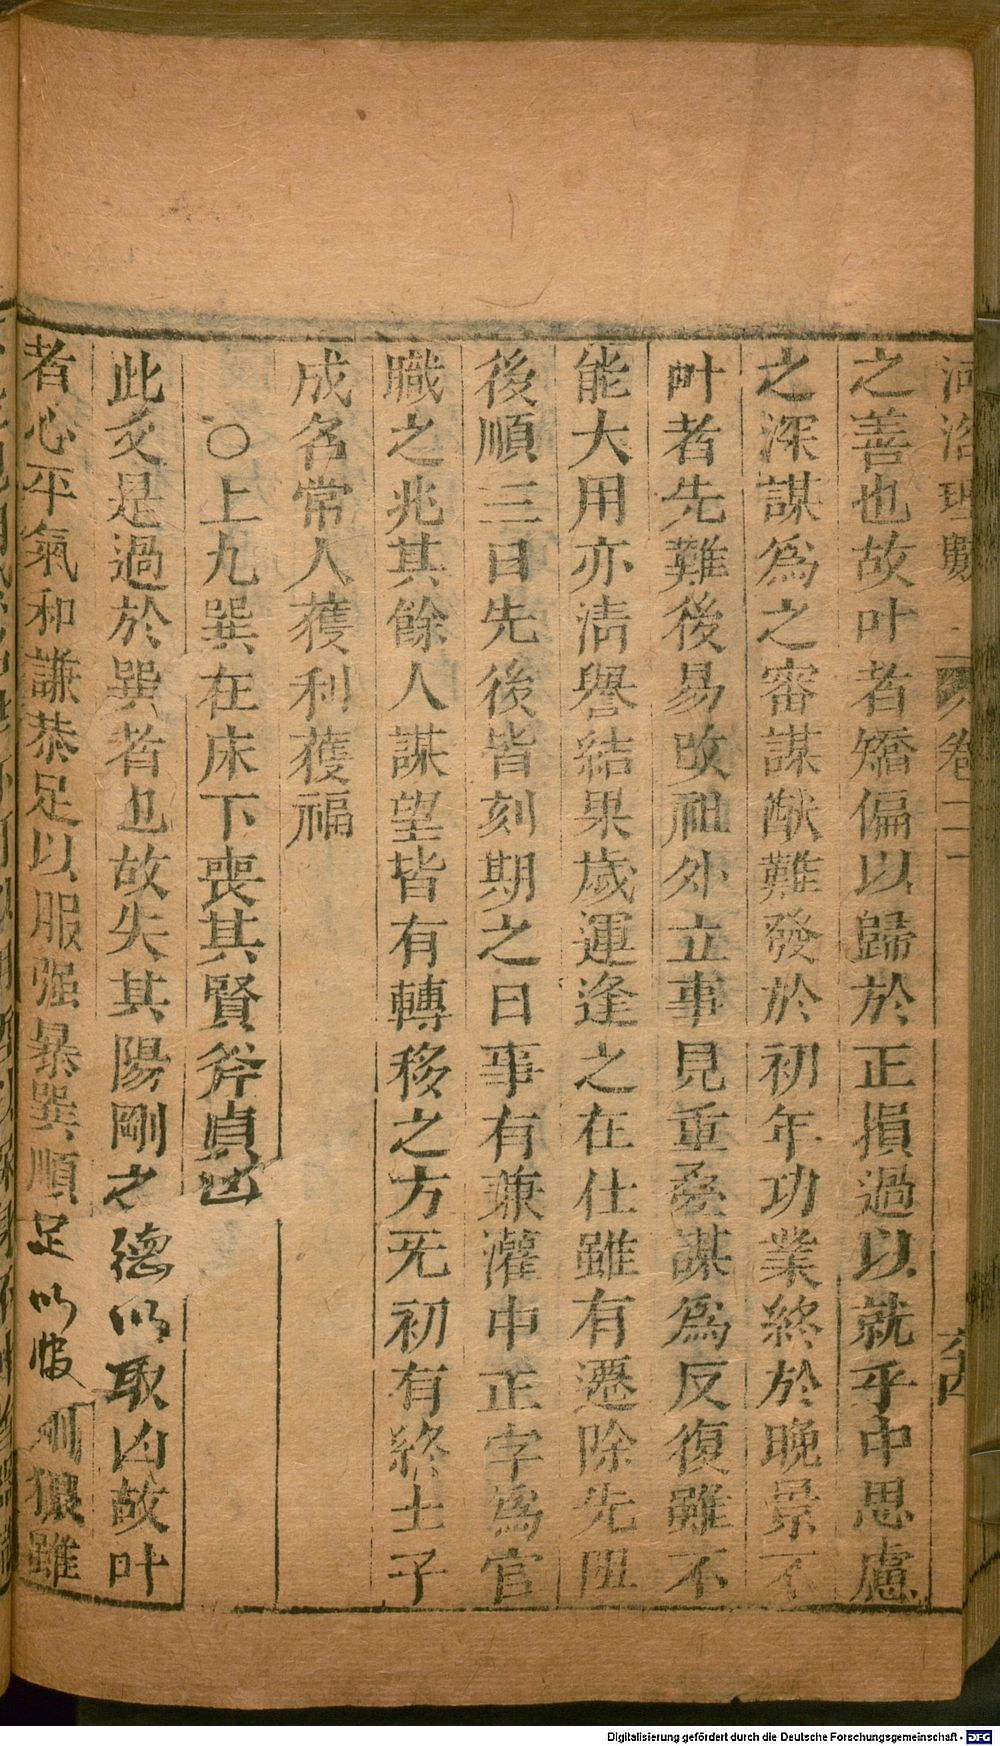 河洛理數
卷二
之善也故叶者矯偏以歸於正損過以就乎中思慮
之深謀為之審謀猷難發於初年功業終於晚景不
叶者先難後易改祖外立事見重疊謀為反復雖不
能大用亦淸譽結果歲運逢之在仕雖有遷除先阻
後順三日先後皆刻期之日事有兼灌中正字為官
職之兆其餘人謀望皆有轉移之方旡初有終士子
成名常人獲利獲福
○上九巽在床下喪其賢斧貞凶
此爻是過於巽者也故失其陽剛之德以取凶故叶
者心平氣和謙恭足以服强暴巽順足以服剛狠雖
Digitalisierung gefördert durch die Deutsche Forschungsgemeinschaft - DFG